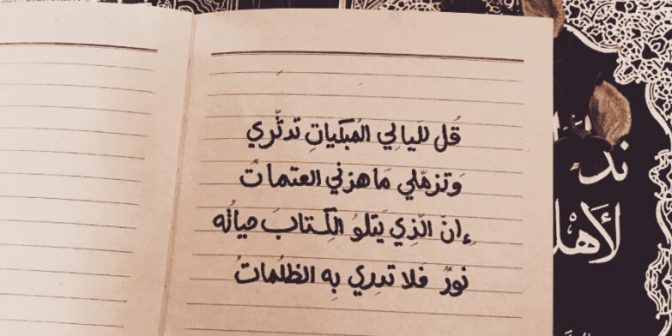 قُل لليالِي المُبكياتِ تدثّرِي
وَتزمّلي مَا هزني العتماتُ
إنّ الّذِي يَتلُو الكِتابَ حياتُه
نورٌ فَلا تدرِي بِه الظلُماتُ
ند
لأهل